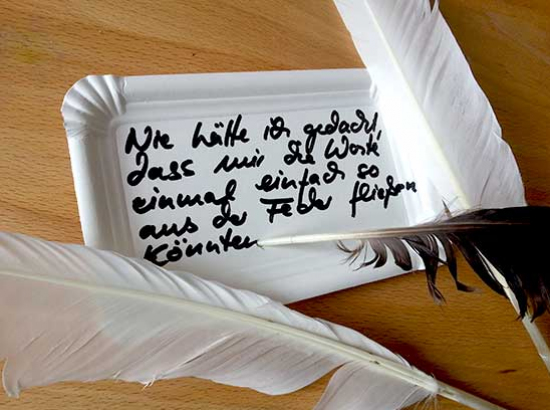 Nie hätte ich gedacht,
dass mir die Worte
einmal einfach so
aus der Feder fließen
könnten